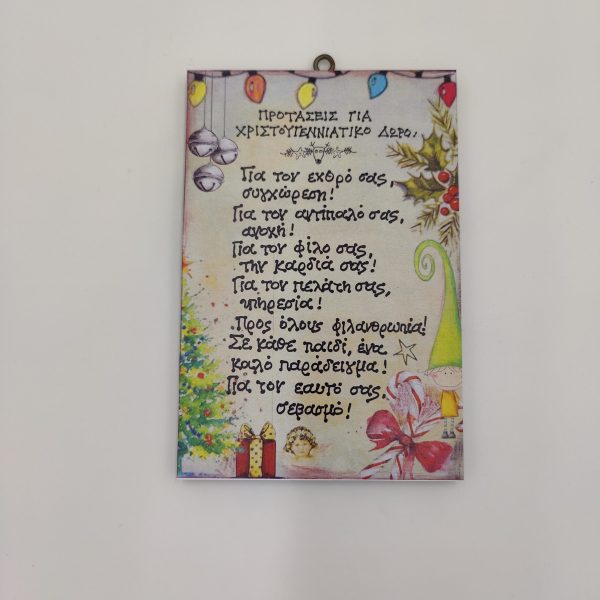 ΠΡΟΤΑΣΕΙΣ ΓΙΑ
ΧΡΙΣΤΟΥΓΕΝΝΙΑΤΙΚΟ ΔΩΡΟ:
Για τον εχθρό σας,
συγχώρεση!
Για τον αντίπαλό σας,
ανοχή!
Για τον φίλο σας,
την καρδιά σας!
Για τον πελάτη σας,
υπηρεσία!
Προς όλους φιλανθρωπία!
Σε κάθε παιδί, ένα
καλό παράδειγμα!
Για τον εαυτό σας,
σεβασμό!